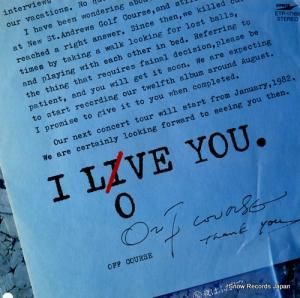 interviews
our vacations. No
I have been wondering about
at New St.Andrews Golf Course, and still
reached a right answer. Since then, we killed our
times by taking a walk looking for lost balls,
and playing with each other in bed. Referring to
the thing that requires fainal decision, please be
patient, and you will get it soon. We are expecting
to start recording our twelfth album around August.
I promise to give it to you when completed.
Our next concert tour will start from January, 1982.
We are certainly looking forward to seeing you then.
I LIVE YOU.
O
OFF COURSE
Thank you
OFF COURSE
STEREO
Snow Records Japan